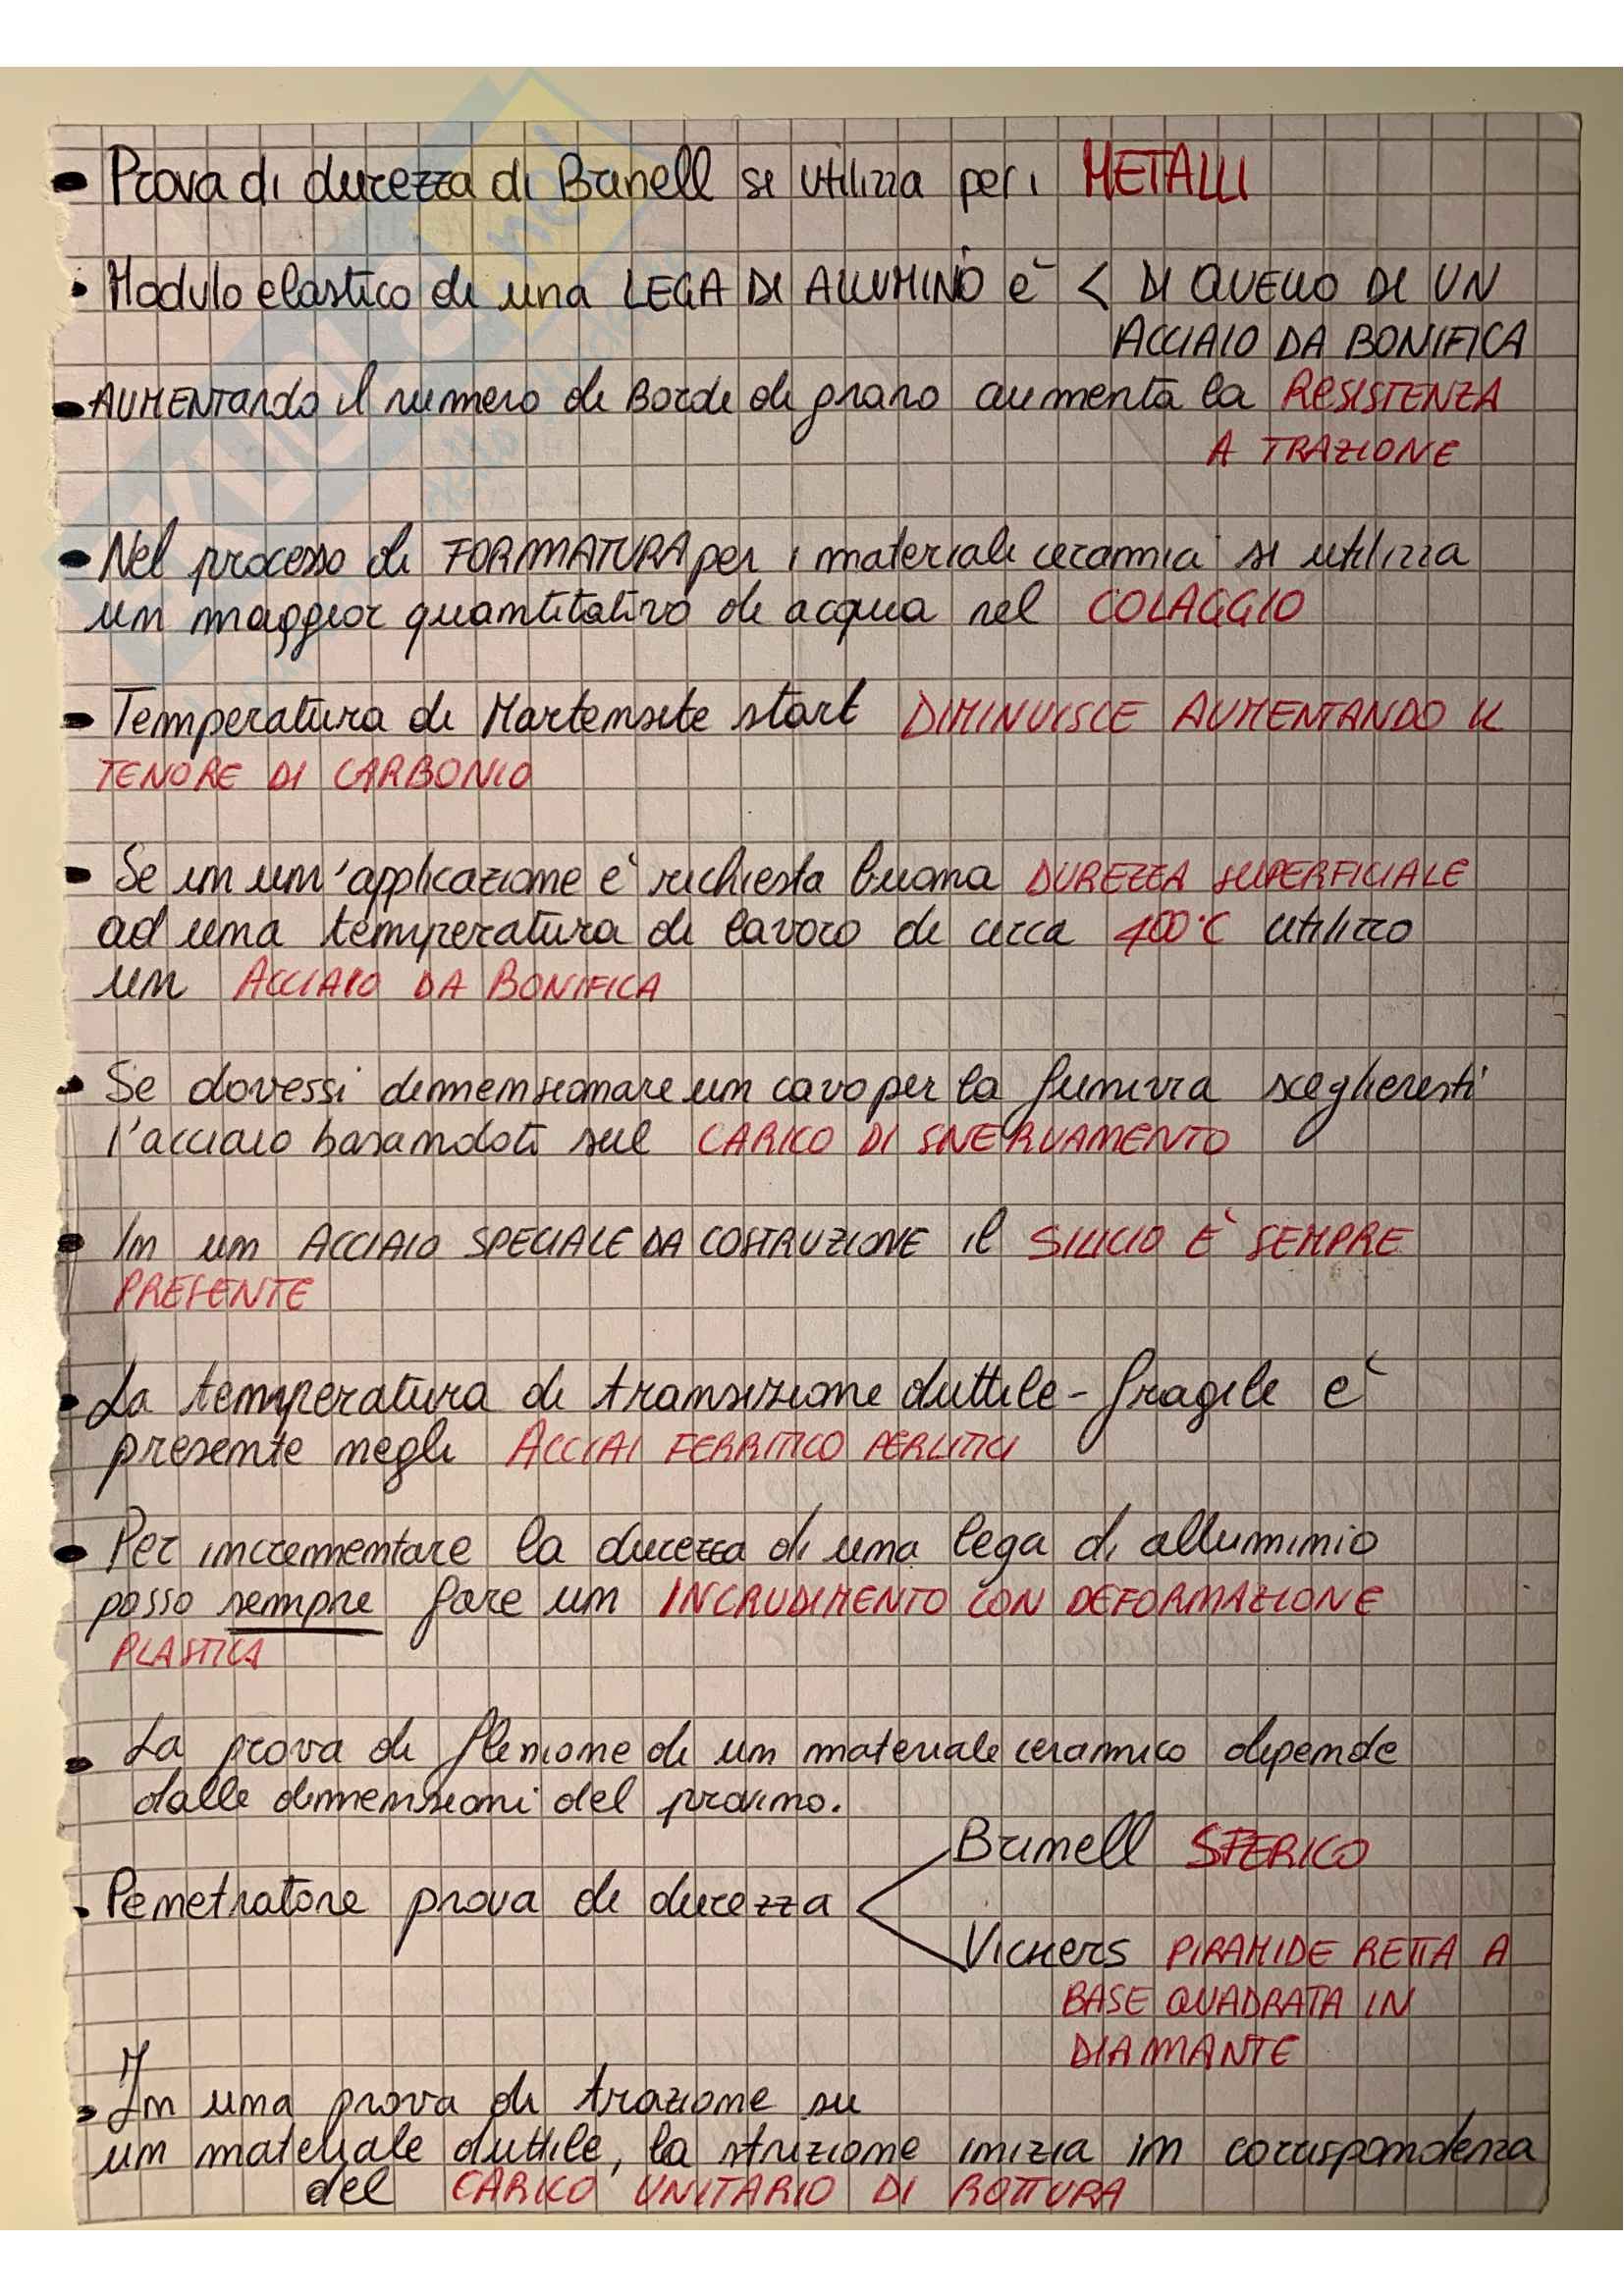 • Prova di durezza di Brinell si utilizza per i METALLI
• Modulo elastico di una LEGA DI ALLUMINO è < DI QUELLO DI UN
ACCIAIO DA BONIFICA
• AUMENTando il numero di Bordi di grano aumenta la RESISTENZA
A TRAZIONE
• Nel processo di FORMATURA per i materiali ceramici si utilizza
un maggior quantitativo di acqua nel COLAGGIO
• Temperatura di Martensite start DIMINUISCE AUMENTANDO IL
TENORE DI CARBONIO
• Se in un'applicazione è richiesta buona DUREZZA SUPERFICIALE
ad una temperatura di lavoro di circa 400°C utilizzo
un ACCIAIO DA BONIFICA
• Se dovessi dimensionare un cavo per la funivia sceglieresti
l'acciaio basandoti sul CARICO DI SNERVAMENTO
• In un ACCIAIO SPECIALE DA COSTRUZIONE il SILICIO È SEMPRE
PRESENTE
• La temperatura di transizione duttile-fragile è
presente negli ACCIAI FERRITICO PERLITICI
• Per incrementare la durezza di una lega di alluminio
posso sempre fare un INCRUDIMENTO CON DEFORMAZIONE
PLASTICA
• La prova di flessione di un materiale ceramico dipende
dalle dimensioni del provino.
Brinell SFERICO
• Penetratore prova di durezza <
Vickers PIRAMIDE RETTA A
BASE QUADRATA IN
DIAMANTE
• In una prova di trazione su
un materiale duttile, la strizione inizia in corrispondenza
del CARICO UNITARIO DI ROTTURA